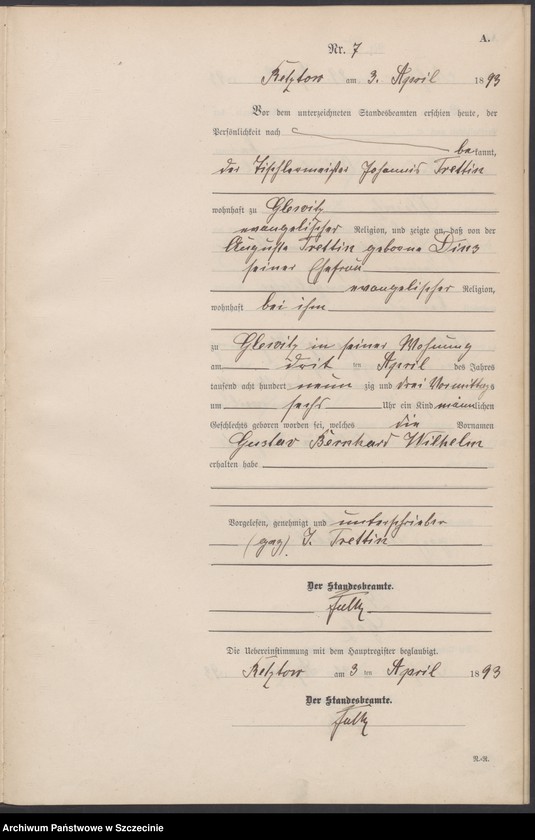 A.
Nr. 7
Retztow am 3. April 1893
Vor dem unterzeichneten Standesbeamten erschien heute, der
Persönlichkeit nach
bekannt,
der Tischlermeister Johannis Trettin
wohnhaft zu Glewitz
evangelischer Religion, und zeigte an, daß von der
Auguste Trettin geborne
seiner Ehefrau
evangelischer Religion,
wohnhaft bei ihm
zu Glewitz in seiner Wohnung
am drit ten April des Jahres
tausend acht hundert neun zig und drei Vormittags
um sechs Uhr ein Kind männlichen
Geschlechts geboren worden sei, welches die Vornamen
Gustav Bernhard Wilhelm
erhalten habe
Vorgelesen, genehmigt und unterschrieben
(gez). J. Trettin
Der Standesbeamte.
Die Uebereinstimmung mit dem Hauptregister beglaubigt.
Retztow am 3 ten April 1893
Der Standesbeamte.
N.-R.
Archiwum Państwowe w Szczecinie